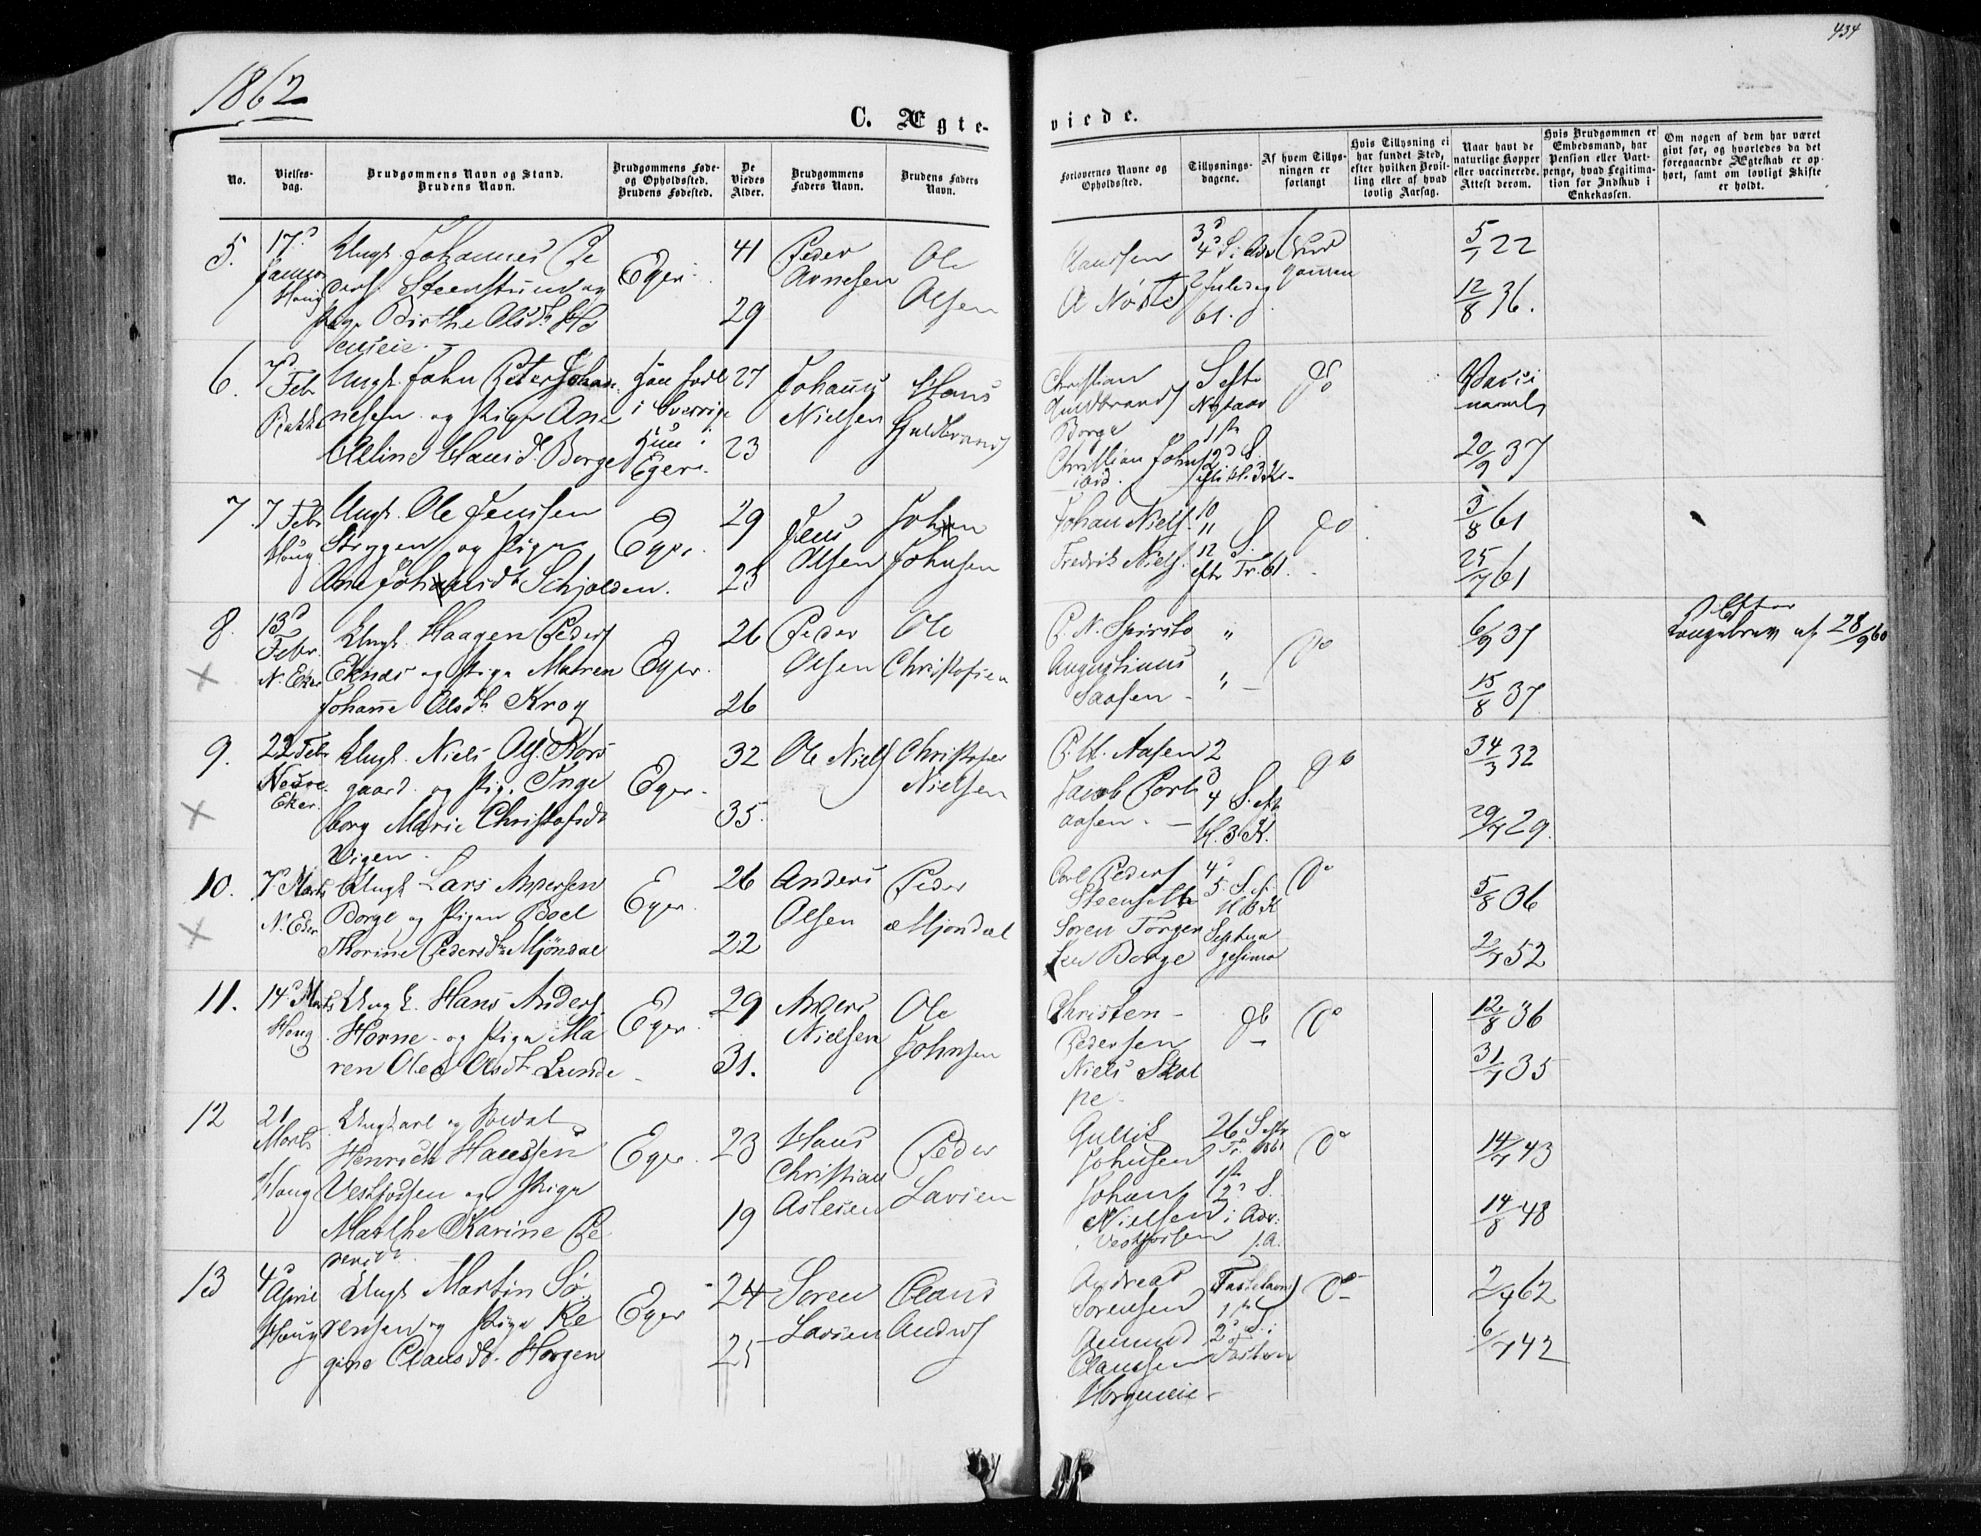 434
1862
C. Ægte-
viede.
No.
Vielses-
dag.
Brudgommens Navn og Stand.
Brudens Navn.
Brudgommens Føde-
og Opholdssted.
Brudens Fødested.
De
Viedes
Alder.
Brudgommens
Faders Navn.
Brudens Faders
Navn.
Forlovernes Navne og
Opholdssted.
Tillysnings-
dagene.
Af hvem Tillys-
ningen er
forlangt
Hvis Tillysning ei
har fundet Sted,
efter hvilken Bevil-
ling eller af hvad
lovlig Aarsag.
Naar havt de
naturlige Kopper
eller vaccinerede.
Attest derom.
Hvis Brudgommen er
Embedsmand, har
Pension eller Vart-
penge, hvad Legitima-
tion for Indskud i
Enkekassen.
Om nogen af dem har været
givt før, og hvorledes da det
foregaaende Ægteskab er op-
hørt, samt om lovligt Skifte
er holdt.
5.
17d
Haug
Ungk. Johannes Pe
og
Pige Birthe Olsdt Ho
enseie.
Eger.
41
29
Peder
Arnesen
Ole
Olsen
Brud
gommen
5/1 22
12/8 36.
6.
7d
Febr
Ungk. John Peter Johan
nesen og Pige Ane
Elline Hansdt. Borge
Han født
i Sverrige
Hun i
Eger.
27
23
Johans
Nielsen
Hans
Guldbrands
Christian
Guldbrands
Borge
S efter
Nytaar
1ste
2d S.
do
20/9 37
7.
7 Febr
Haug
Ungk. Ole Jenssen
Styggen og Pige
Ane Johansdt Schjolden.
Eger.
29
25
Jens
Olsen
Johan
Johnsen
Johan Niels.
Fredrik Niels.
10
11
12 S.
efter Tr. 61.
do
3/8 61
25/7 61
8.
13d
Febr.
N. Eker
Ungk. Haagen Peders
Eknes og Pige Maren
Johanne Olsdt. Krog
Eger.
26
26
Peder
Olsen
Ole
Christofsen
Augustinus
Saasen
"
"
Do
6/9 37
15/8 37
Efter
af 28/9 60
9.
22 Febr
Nedre
Eker.
Ungk. Niels Ols. Kors
gaard og Pig. Inge
borg Marie Christofsdt
Vigen.
Eger.
32
35.
Ole Niels
Christofer
Nielsen
Aasen
Jacob
aasen.
2
3
4 S. eft
H. 3 K.
do
29/7 29.
10.
7. Marts
N. Eker
Ungk Lars Andersen
Borge og Pigen Boel
Thorine Pedersdt Mjøndal
Eger.
26
22
Anders
Olsen
Peder
Mjøndal
Carl Peders
Søren Torger
sen Borge
4d
5. S. e.
H 3 K
Septua
gesima
Do
5/8 36
2/7 52
11.
14d Marts
Haug
Ungk. Hans Anders.
Horne og Pige Ma
ren Olea Olsdt. Lunde
Eger.
29
31.
Anders
Nielsen
Ole
Johnsen
Christen
Pedersen
Niels Skal
pe
do
Do
12/8 36
31/7 35
12
21
Marts
Haug
Ungkarl og
Henrich Hanssen
Vestfossen og Pige
Marthe Karine Pe
dersdt.
Eger.
23
19
Hans
Christian
Aslesen
Peder
Larsen
Gullik
Johnsen
Johan
Nielsen
Vestfossen
26 S efter
Tr. 1861
1ste
2d S.
i Adv.
f. A.
Do
14/7 43
14/8 48
13
4d
April
Haug
Ungk Martin Sø
rensen og Pige Re
gine Clausdt. Horgen
Eger
24
25
Søren
Larsen
Claus
Anders
Andreas
Sørensen
Amund
Claussen
Horgeneie
Fastelavns
1ste
2d S. i
Fasten
Do
2/4 62
6/7 42